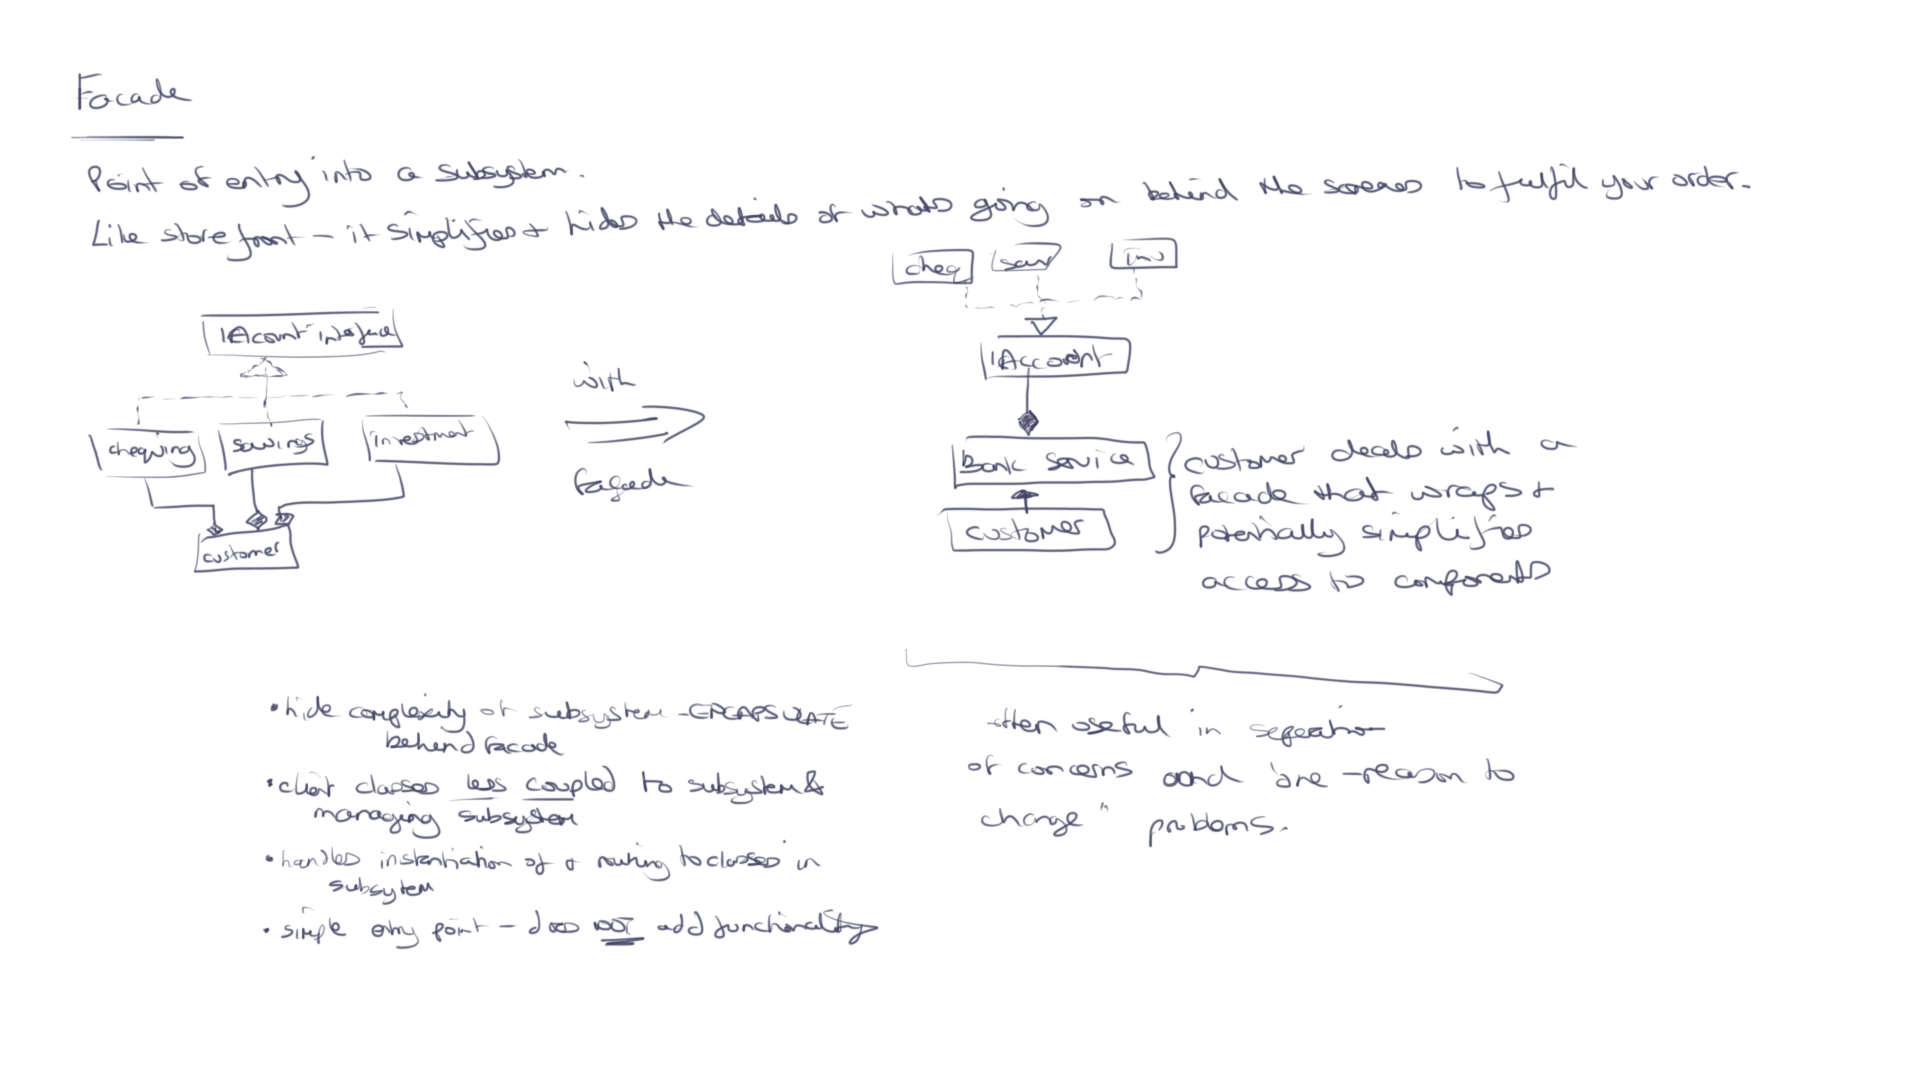 Facade
Point of entry into a subsystem.
Like storefront – it simplifies + hides the details of whats going on behind the scenes to fulfil your order.
IAcount interface
chequing
savings
investment
customer
with
façade
cheq
sav
inv
IAccount
Bank Service
customer
customer deals with a
facade that wraps +
potentially simplifies
access to components
• hide complexity of subsystem - ENCAPSULATE
behind facade
• client classes less coupled to subsystem &
managing subsystem
• handles instantiation of & routing to classes in
subsytem
• simple entry point – does NOT add functionality
often useful in
of concerns and "one-reason to
change" problems.